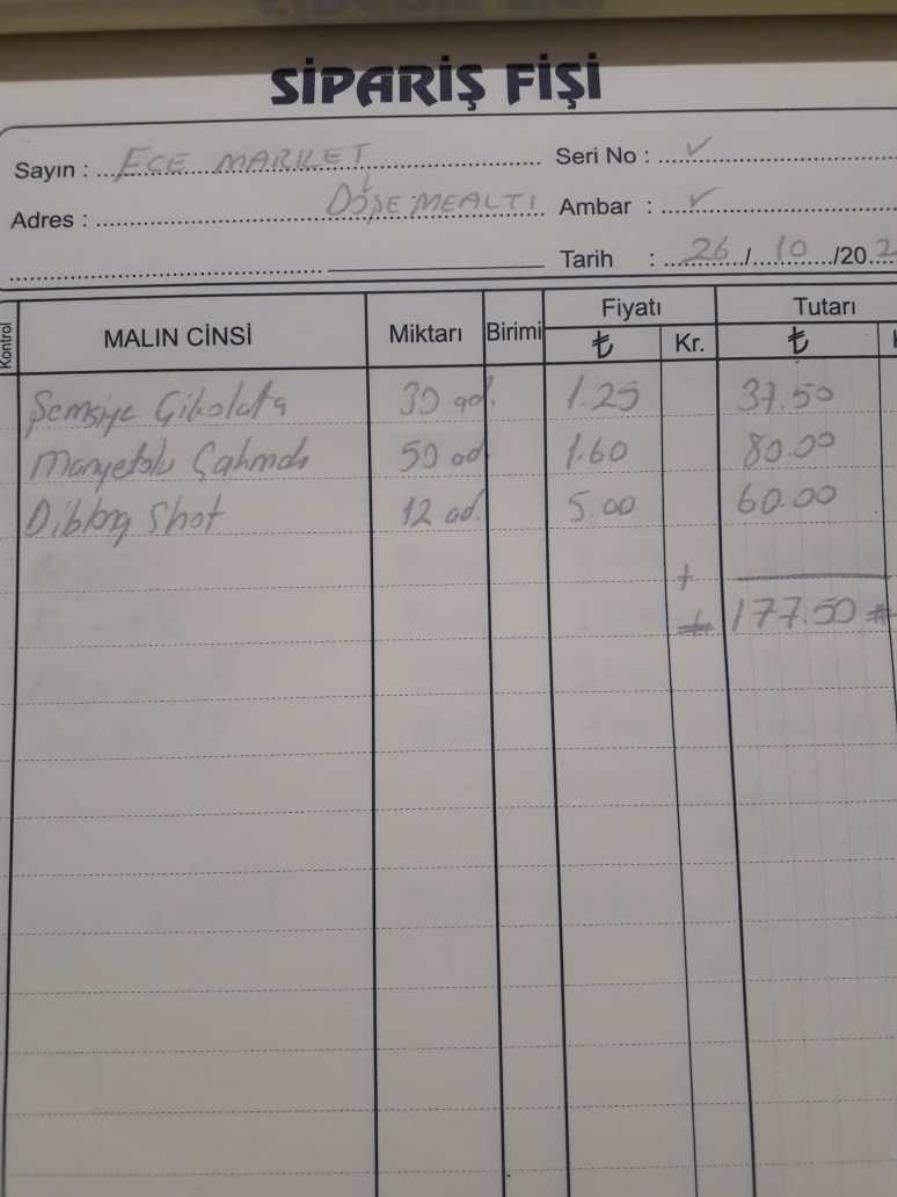 SİPARİŞ FİŞİ
Sayın : ECE MARKET Seri No : ✓
Adres : DÖŞEMEALTI Ambar : ✓
Tarih : 26/10/202
Kontrol MALIN CİNSİ Miktarı Birimi Fiyatı ₺ Kr. Tutarı ₺
Şemsiye Çikolata 30 ad. 1.25 37.50
Manyetolu Çakmak 50 ad 1.60 80.00
Shot 12 ad. 5.00 60.00
+
177.50